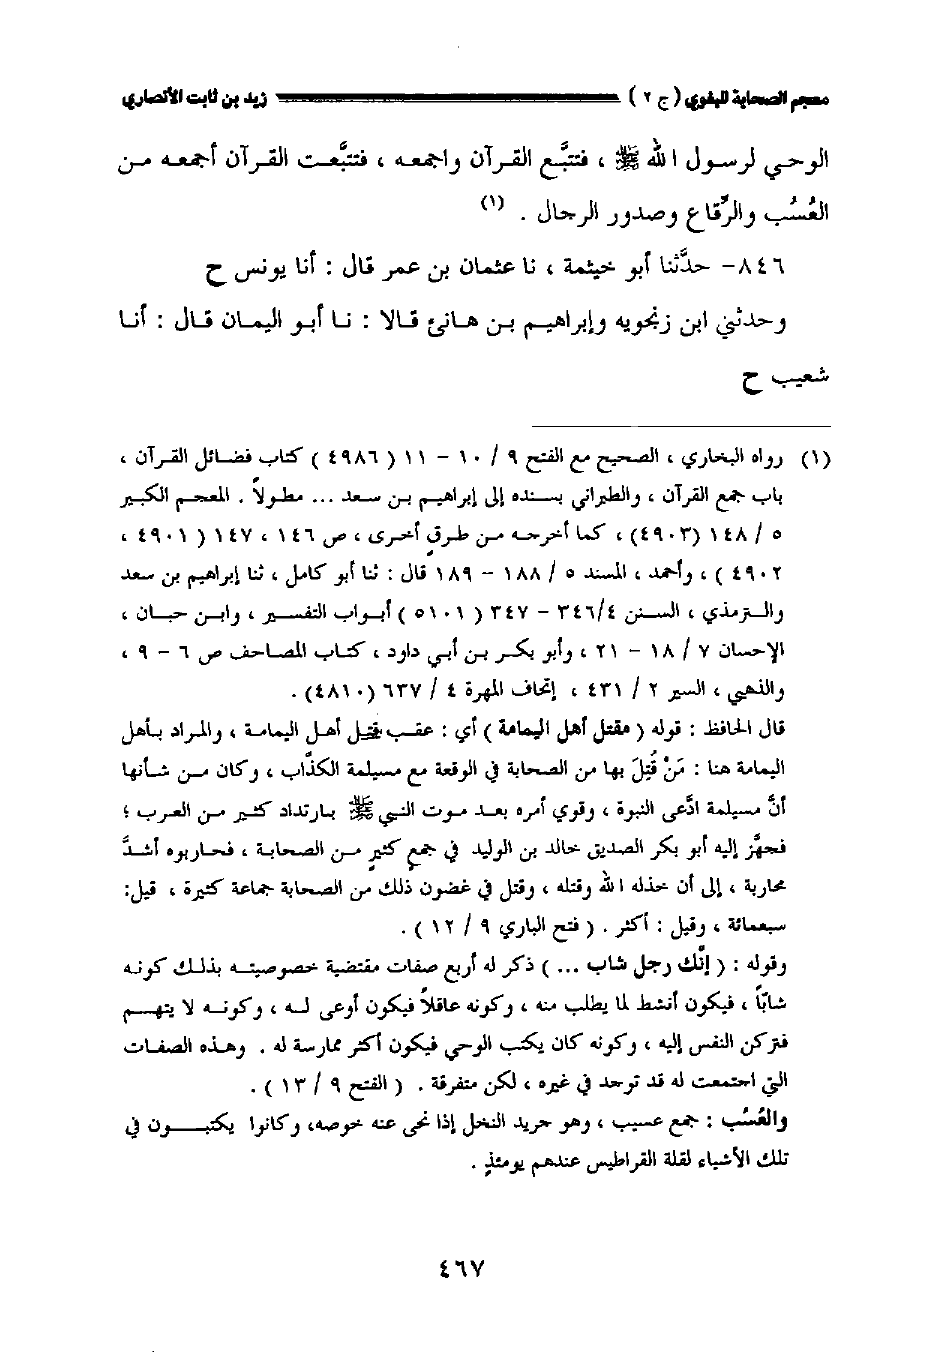 معجم الصحابة للبغوي ( ج ٢ ) زيد بن ثابت الأنصاري
الوحي لرسول الله ﷺ ، فتتبَّع القرآن واجمعه ، فتتبَّعت القرآن أجمعه من
العُسُب والرِّقاع وصدور الرجال . (١)
٨٤٦- حدَّثنا أبو خيثمة ، نا عثمان بن عمر قال : أنا يونس ح
وحدثني ابن زنجويه وإبراهيم بن هانئ قالا : نا أبو اليمان قال : أنا
شعيب ح
(١) رواه البخاري ، الصحيح مع الفتح ٩ / ١٠ - ١١ ( ٤٩٨٦ ) كتاب فضائل القرآن ،
باب جمع القرآن ، والطبراني بسنده إلى إبراهيم بن سعد ... مطولاً . المعجم الكبير
٥ / ١٤٨ (٤٩٠٣) ، كما أخرجه من طرقٍ أخرى ، ص ١٤٦ ، ١٤٧ ( ٤٩٠١ ،
٤٩٠٢ ) ، وأحمد ، المسند ٥ / ١٨٨ - ١٨٩ قال : ثنا أبو كامل ، ثنا إبراهيم بن سعد
والترمذي ، السنن ٣٤٦/٤ - ٣٤٧ ( ٥١٠١ ) أبواب التفسير ، وابن حبان ،
الإحسان ٧ / ١٨ - ٢١ ، وأبو بكر بن أبي داود ، كتاب المصاحف ص ٦ - ٩ ،
والذهبي ، السير ٢ / ٤٣١ ، إتحاف المهرة ٤ / ٦٣٧ (٤٨١٠) .
قال الحافظ : قوله ( مقتل أهل اليمامة ) أي : عقب قتل أهل اليمامة ، والمراد بأهل
اليمامة هنا : مَنْ قُتِلَ بها من الصحابة في الوقعة مع مسيلمة الكذَّاب ، وكان من شأنها
أنَّ مسيلمة ادَّعى النبوة ، وقوي أمره بعد موت النبي ﷺ بارتداد كثير من العرب ؛
فجهَّز إليه أبو بكر الصديق خالد بن الوليد في جمعٍ كثيرٍ من الصحابة ، فحاربوه أشدَّ
محاربة ، إلى أن خذله الله وقتله ، وقتل في غضون ذلك من الصحابة جماعة كثيرة ، قيل:
سبعمائة ، وقيل : أكثر . ( فتح الباري ٩ / ١٢ ) .
وقوله : ( إنَّك رجل شاب ... ) ذكر له أربع صفات مقتضية خصوصيته بذلك كونه
شابّاً ، فيكون أنشط لما يطلب منه ، وكونه عاقلاً فيكون أوعى له ، وكونه لا يتهم
فتركن النفس إليه ، وكونه كان يكتب الوحي فيكون أكثر ممارسة له . وهذه الصفات
التي اجتمعت له قد توجد في غيره ، لكن متفرقة . ( الفتح ٩ / ١٣ ) .
والعُسُب : جمع عسيب ، وهو جريد النخل إذا نحى عنه خوصه، وكانوا يكتبون في
تلك الأشياء لقلة القراطيس عندهم يومئذٍ .
٤٦٧